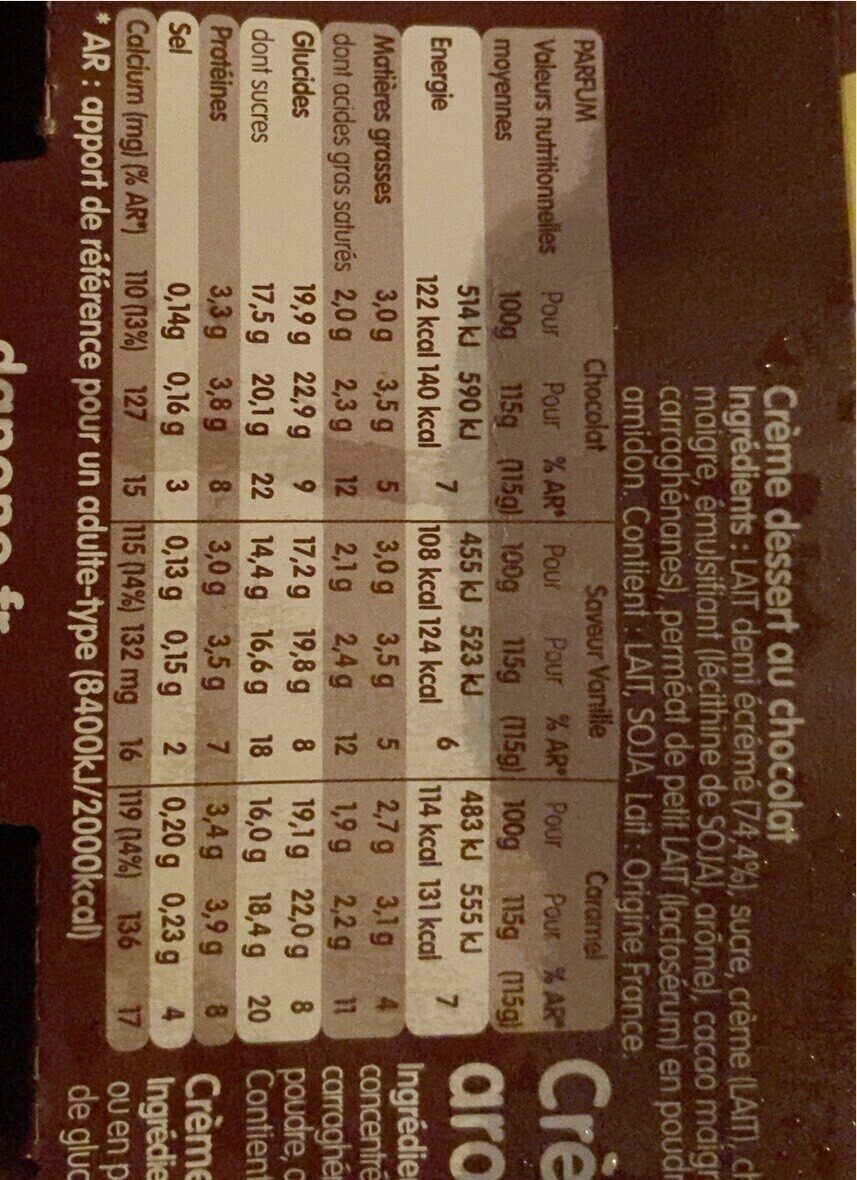 Crème dessert au chocolat
Ingrédients : LAIT demi écrémé (74,4%), sucre, crème (LAIT), ch
maigre, émulsifiant (lécithine de SOJA), arôme), cacao maigr
carraghénanes), perméat de petit LAIT (lactosérum) en poudr
amidon. Contient : LAIT, SOJA. Lait : Origine France.
PARFUM Chocolat Saveur Vanille Caramel
Valeurs nutritionnelles Pour Pour % AR* Pour Pour % AR* Pour Pour % AR*
moyennes 100g 115g (115g) 100g 115g (115g) 100g 115g (115g)
Energie 514 kJ 590 kJ 455 kJ 523 kJ 483 kJ 555 kJ
122 kcal 140 kcal 7 108 kcal 124 kcal 6 114 kcal 131 kcal 7
Matières grasses 3,0 g 3,5 g 5 3,0 g 3,5 g 5 2,7 g 3,1 g 4
dont acides gras saturés 2,0 g 2,3 g 12 2,1 g 2,4 g 12 1,9 g 2,2 g 11
Glucides 19,9 g 22,9 g 9 17,2 g 19,8 g 8 19,1 g 22,0 g 8
dont sucres 17,5 g 20,1 g 22 14,4 g 16,6 g 18 16,0 g 18,4 g 20
Protéines 3,3 g 3,8 g 8 3,0 g 3,5 g 7 3,4 g 3,9 g 8
Sel 0,14g 0,16 g 3 0,13 g 0,15 g 2 0,20 g 0,23 g 4
Calcium (mg) (% AR*) 110 (13%) 127 15 115 (14%) 132 mg 16 119 (14%) 136 17
* AR : apport de référence pour un adulte-type (8400kJ/2000kcal)
Crè
aro
Ingrédie
concentré
carraghé
poudre, c
Contient
Crème
Ingrédie
ou en p
de gluc
danone.fr